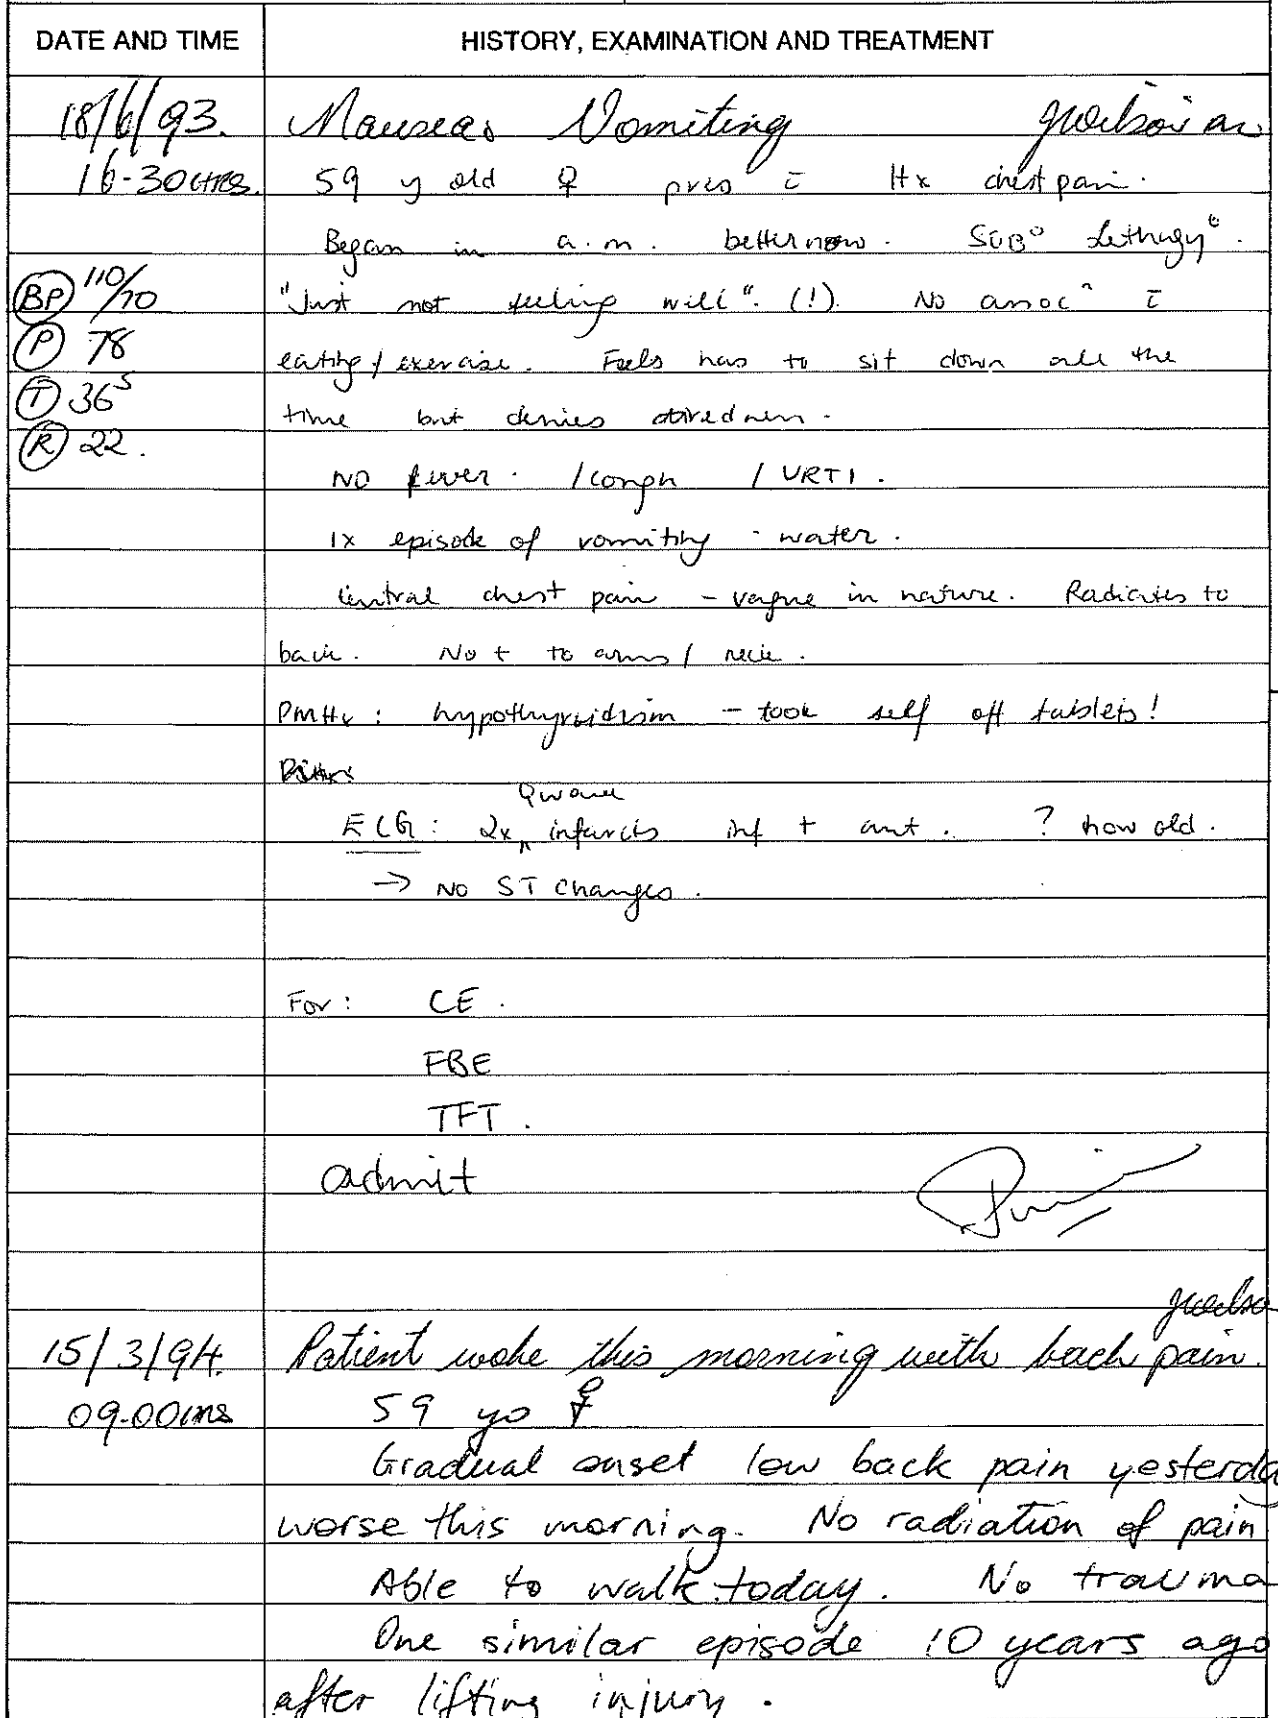 DATE AND TIME HISTORY, EXAMINATION AND TREATMENT
18/6/93. Nausea Vomiting
16-30HRS. 59 y old ♀ pres c̄ Hx chest pain.
Began in a.m. better now. SOB° Lethargy°.
BP 110/70 "Just not feeling well". (!). No assocⁿ c̄
P 78 eating/exercise. Feels has to sit down all the
T 36⁵ time but denies tiredness.
R 22.
No fever. /cough / URTI.
1x episode of vomiting - water.
Central chest pain - vague in nature. Radiates to
back. Not to arms/ neck.
PMHx: hypothyroidism - took self off tablets!
Qwave
ECG: 2x ^ infarcts inf + ant. ? how old.
→ No ST changes.
For: CE.
FBE
TFT.
admit
15/3/94. Patient woke this morning with back pain.
09-00HRS 59 yo ♀
Gradual onset low back pain yesterda
worse this morning. No radiation of pain
Able to walk today. No trauma
One similar episode 10 years ago
after lifting injury.